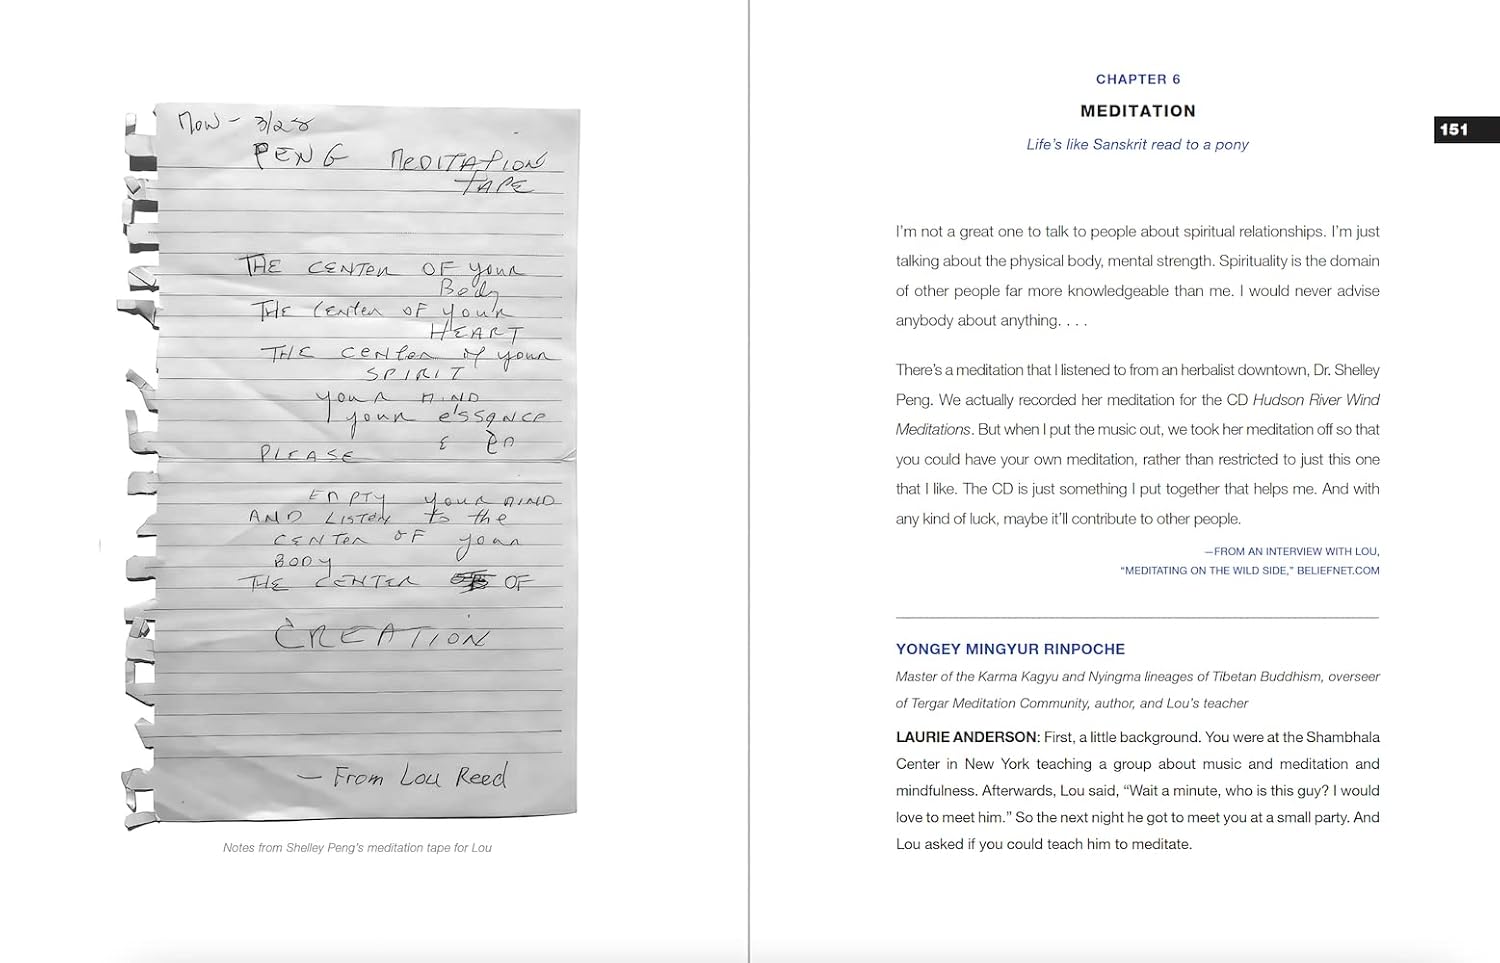 Mon - 3/28
PENG MEDITATION
TAPE
THE CENTER OF your
Body
THE CENter OF your
HEART
THE CENter of your
SPIRIT
your MIND
your e'ssence
&
PLEASE
EMPTY your MIND
AND LISTEN to the
CENTER OF your
BODY
THE CENTER OF
CREATION
— From Lou Reed
Notes from Shelley Peng's meditation tape for Lou
CHAPTER 6
MEDITATION
Life's like Sanskrit read to a pony
151
I'm not a great one to talk to people about spiritual relationships. I'm just
talking about the physical body, mental strength. Spirituality is the domain
of other people far more knowledgeable than me. I would never advise
anybody about anything. . . .
There's a meditation that I listened to from an herbalist downtown, Dr. Shelley
Peng. We actually recorded her meditation for the CD Hudson River Wind
Meditations. But when I put the music out, we took her meditation off so that
you could have your own meditation, rather than restricted to just this one
that I like. The CD is just something I put together that helps me. And with
any kind of luck, maybe it'll contribute to other people.
—FROM AN INTERVIEW WITH LOU,
"MEDITATING ON THE WILD SIDE," BELIEFNET.COM
YONGEY MINGYUR RINPOCHE
Master of the Karma Kagyu and Nyingma lineages of Tibetan Buddhism, overseer
of Tergar Meditation Community, author, and Lou's teacher
LAURIE ANDERSON: First, a little background. You were at the Shambhala
Center in New York teaching a group about music and meditation and
mindfulness. Afterwards, Lou said, "Wait a minute, who is this guy? I would
love to meet him." So the next night he got to meet you at a small party. And
Lou asked if you could teach him to meditate.